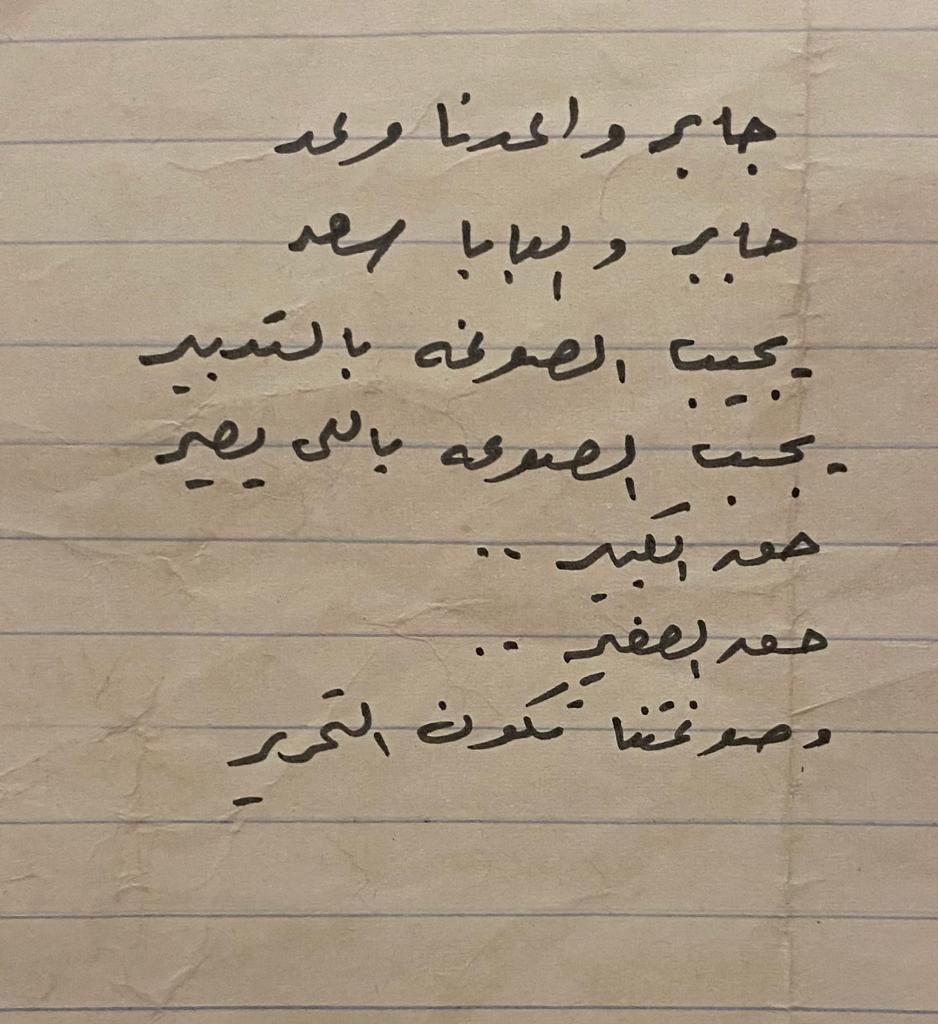 جابر واعدنا وعد
جابر والبابا سعد
يجيب الصوغه بالتدبير
يجيب الصوغه باللي يصير
حقد الكبير ..
حقد الصغير ..
وصوغتنا تكون التحرير